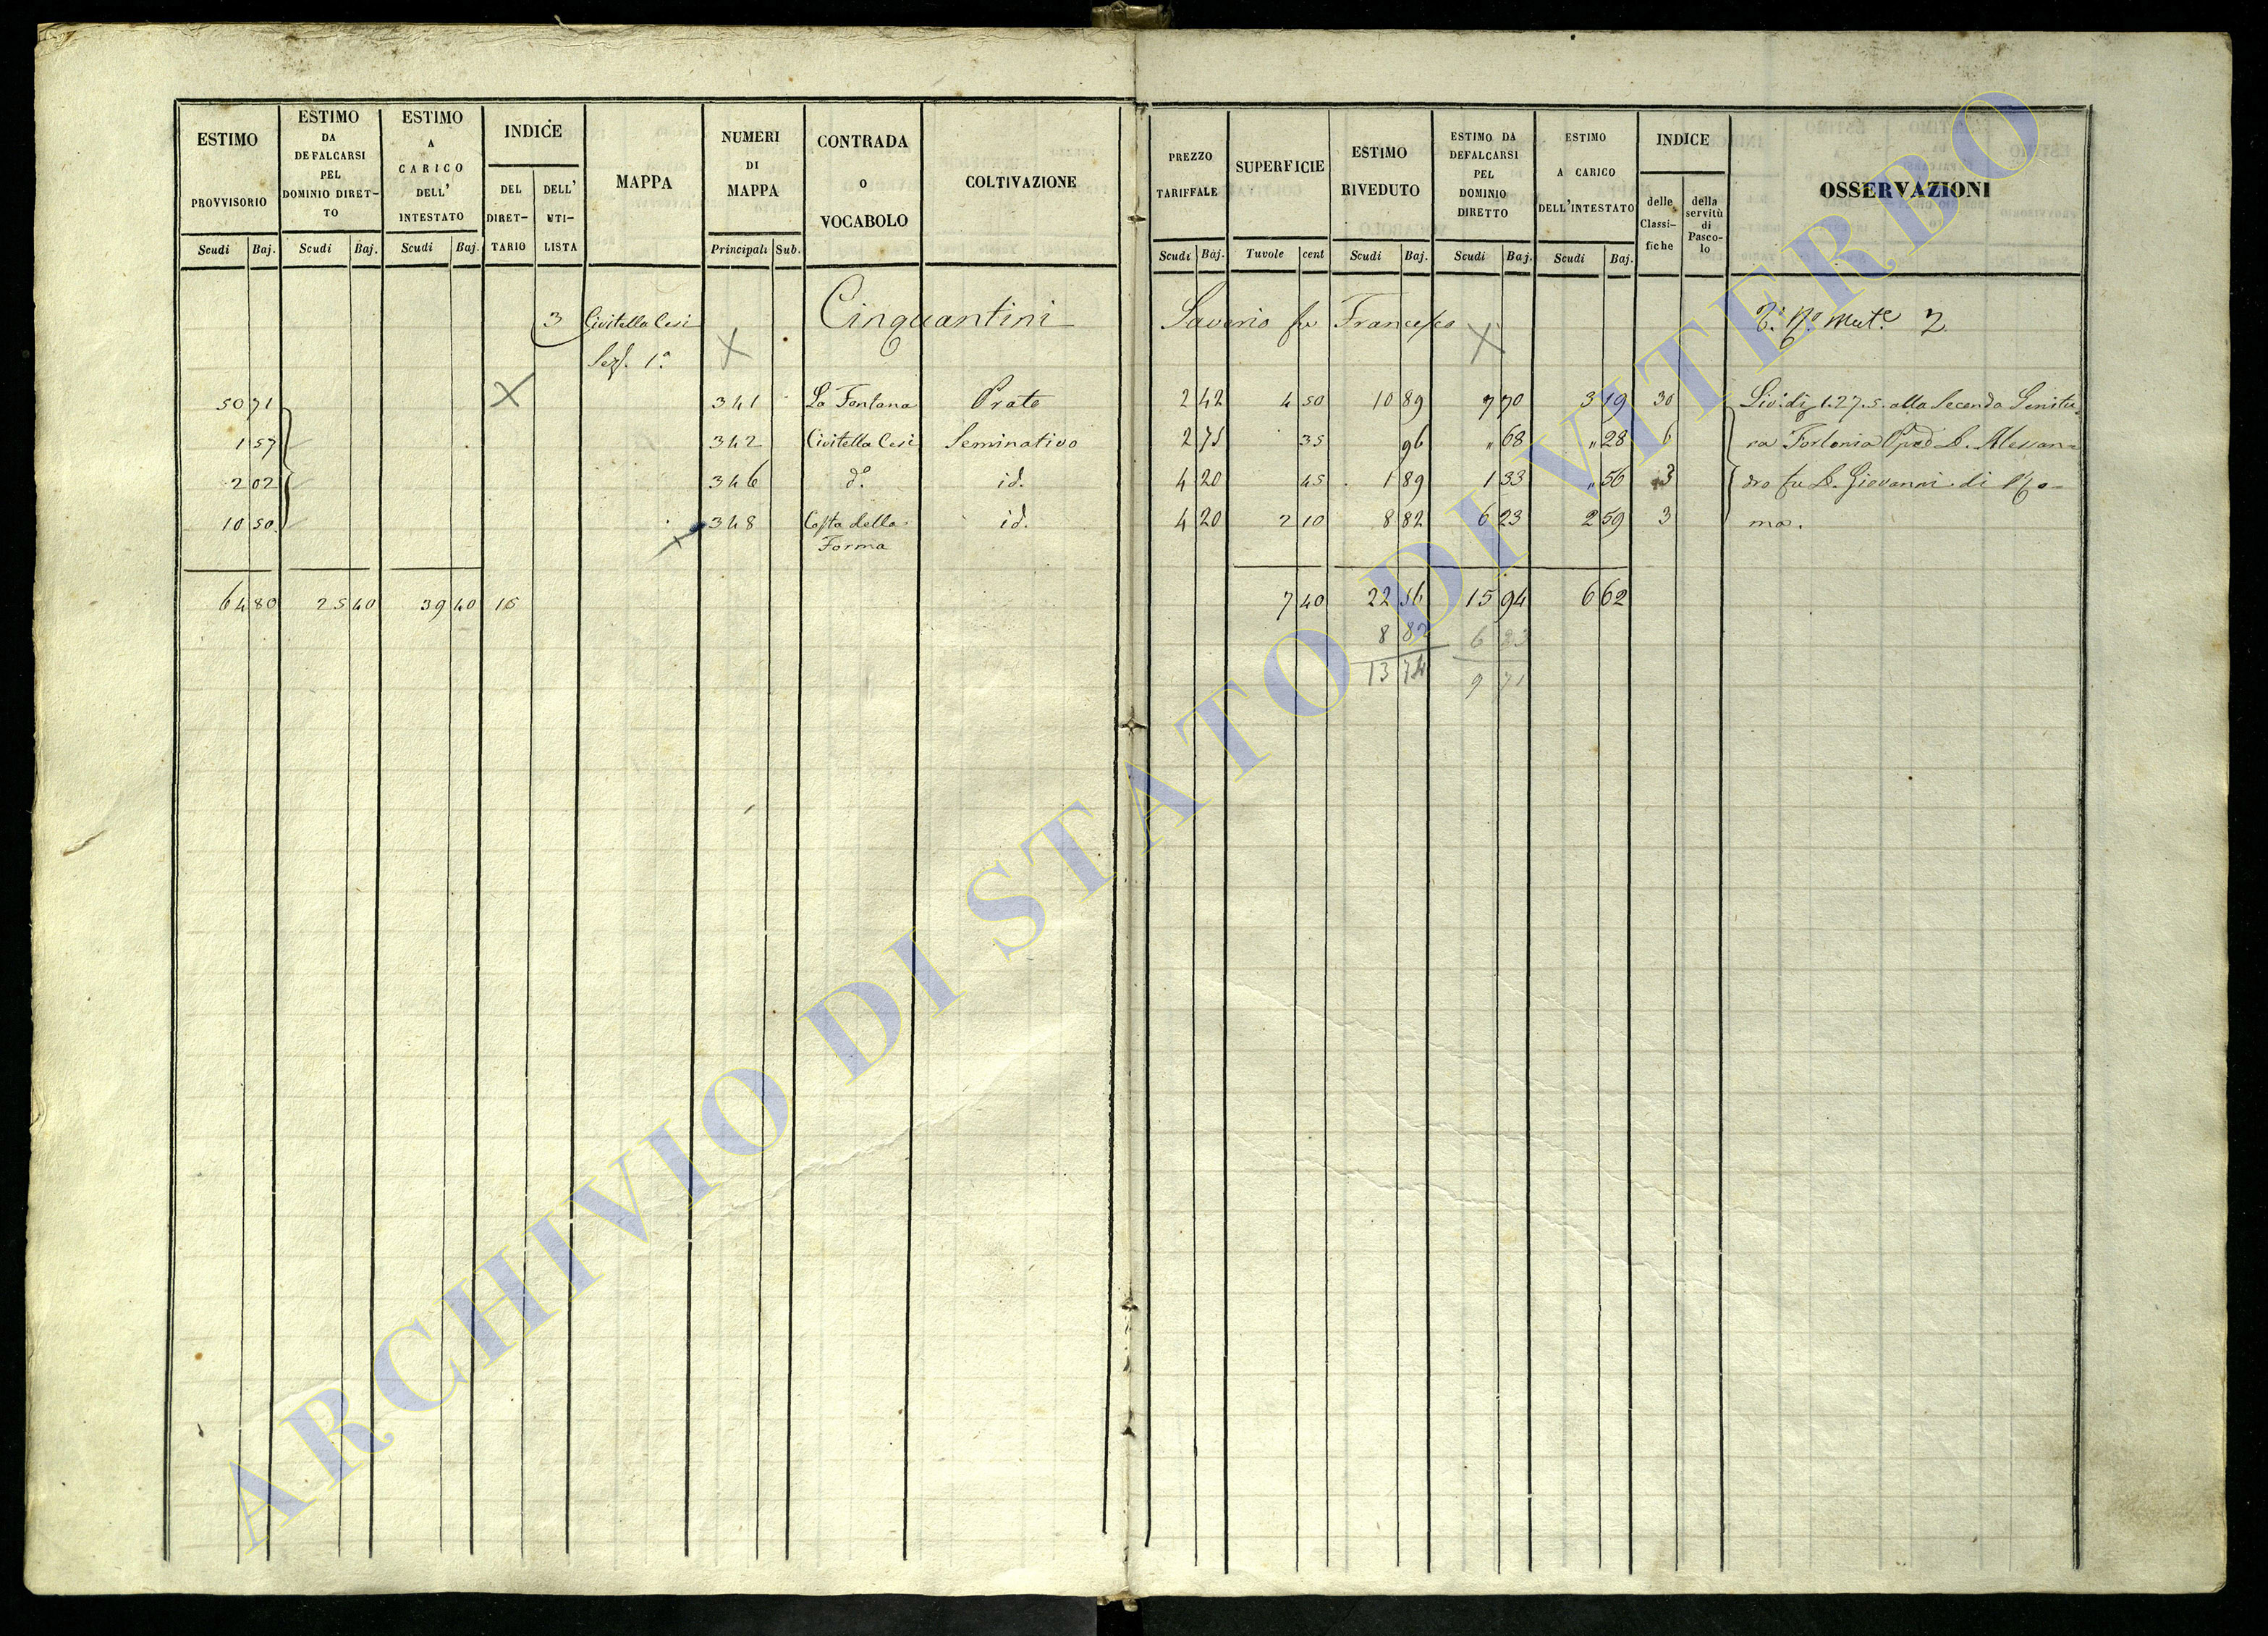 ESTIMO PROVVISORIO Scudi Baj.
ESTIMO DA DEFALCARSI PEL DOMINIO DIRETTO Scudi Baj.
ESTIMO A CARICO DELL' INTESTATO Scudi Baj.
INDICE DEL DIRETTARIO DELL' UTILISTA
MAPPA
NUMERI DI MAPPA Principali Sub.
CONTRADA O VOCABOLO
COLTIVAZIONE
PREZZO TARIFFALE Scudi Baj.
SUPERFICIE Tavole cent
ESTIMO RIVEDUTO Scudi Baj.
ESTIMO DA DEFALCARSI PEL DOMINIO DIRETTO Scudi Baj.
ESTIMO A CARICO DELL'INTESTATO Scudi Baj.
INDICE delle Classifiche della servitù di Pascolo
OSSERVAZIONI
3 Civitella Cesi Cinquantini Saverio fu Francesco 2
Sez. 1ª
50 71 341 La Fontana Prato 2 42 4 50 10 89 7 70 3 19 30 alla Seconda Genitu-
1 57 342 Civitella Cesi Seminativo 2 75 35 96 " 68 " 28 6 ra Torlonia D. Alessan-
2 02 346 dº. id. 4 20 45 1 89 1 33 " 56 3 dro fu D. Giovanni di Ro-
10 50 348 Costa della id. 4 20 2 10 8 82 6 23 2 59 3 ma.
Forma
64 80 25 40 39 40 16 7 40 22 56 15 94 6 62
8 82 6 23
13 74 9 71
ARCHIVIO DI STATO DI VITERBO